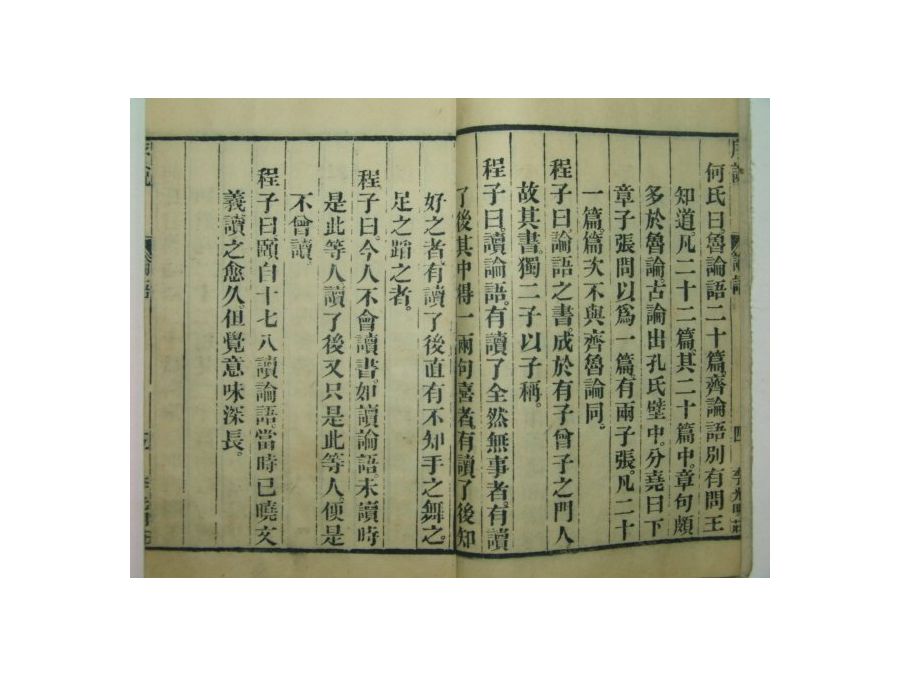 何氏曰。魯論語二十篇。齊論語別有問王
知道。凡二十二篇。其二十篇中。章句頗
多於魯論。古論出孔氏壁中。分堯曰下
章子張問以爲一篇。有兩子張。凡二十
一篇。篇次不與齊魯論同。
程子曰。論語之書。成於有子曾子之門人
故其書。獨二子以子稱。
程子曰。讀論語。有讀了全然無事者。有讀
了後其中得一兩句喜者。有讀了後知
好之者。有讀了後直有不知手之舞之。
足之蹈之者。
程子曰。今人不會讀書。如讀論語。未讀時
是此等人。讀了後又只是此等人。便是
不曾讀。
程子曰。頤自十七八讀論語。當時已曉文
義。讀之愈久。但覺意味深長。